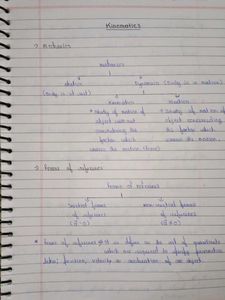 Kinematics
→ Mechanics
mechanics
statics
Dynamics (body is in motion)
(body is at rest)
Kinematics
Kinetics
* Study of motion of
* Study of motion of
object without
object considering
considering the
the factor which
factor which
causes the motion.
causes the motion (force)
→ frame of reference
frame of reference
Inertial frame
non inertial frame
of reference
of reference
* frame of reference is define as the set of
which are required to
position, velocity or acceleration of an object.